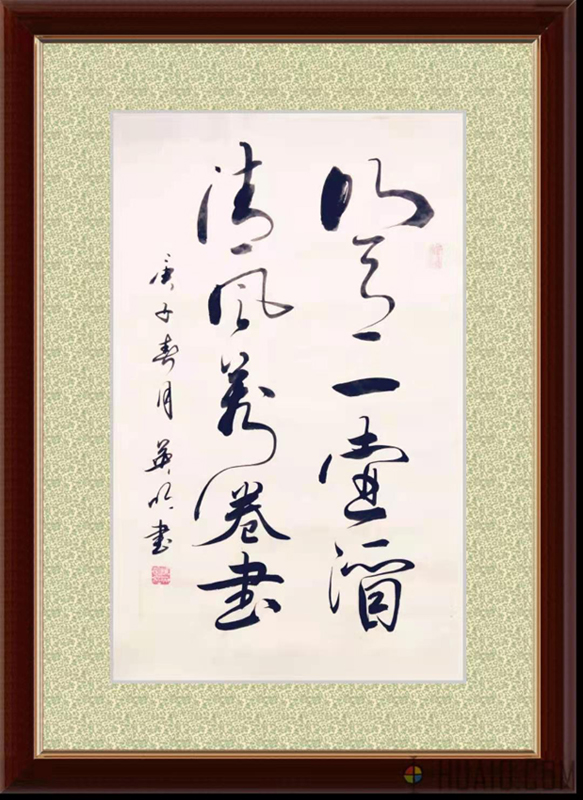 明月一壶酒
清风万卷书
庚子春月 英明书